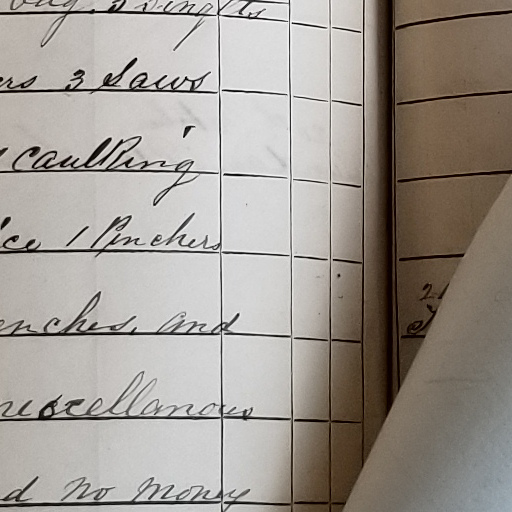 bag, 5 Singlts
rs 3 Saws
caulking
ice 1 Pinchers
enches, and
miscellanous
d no money